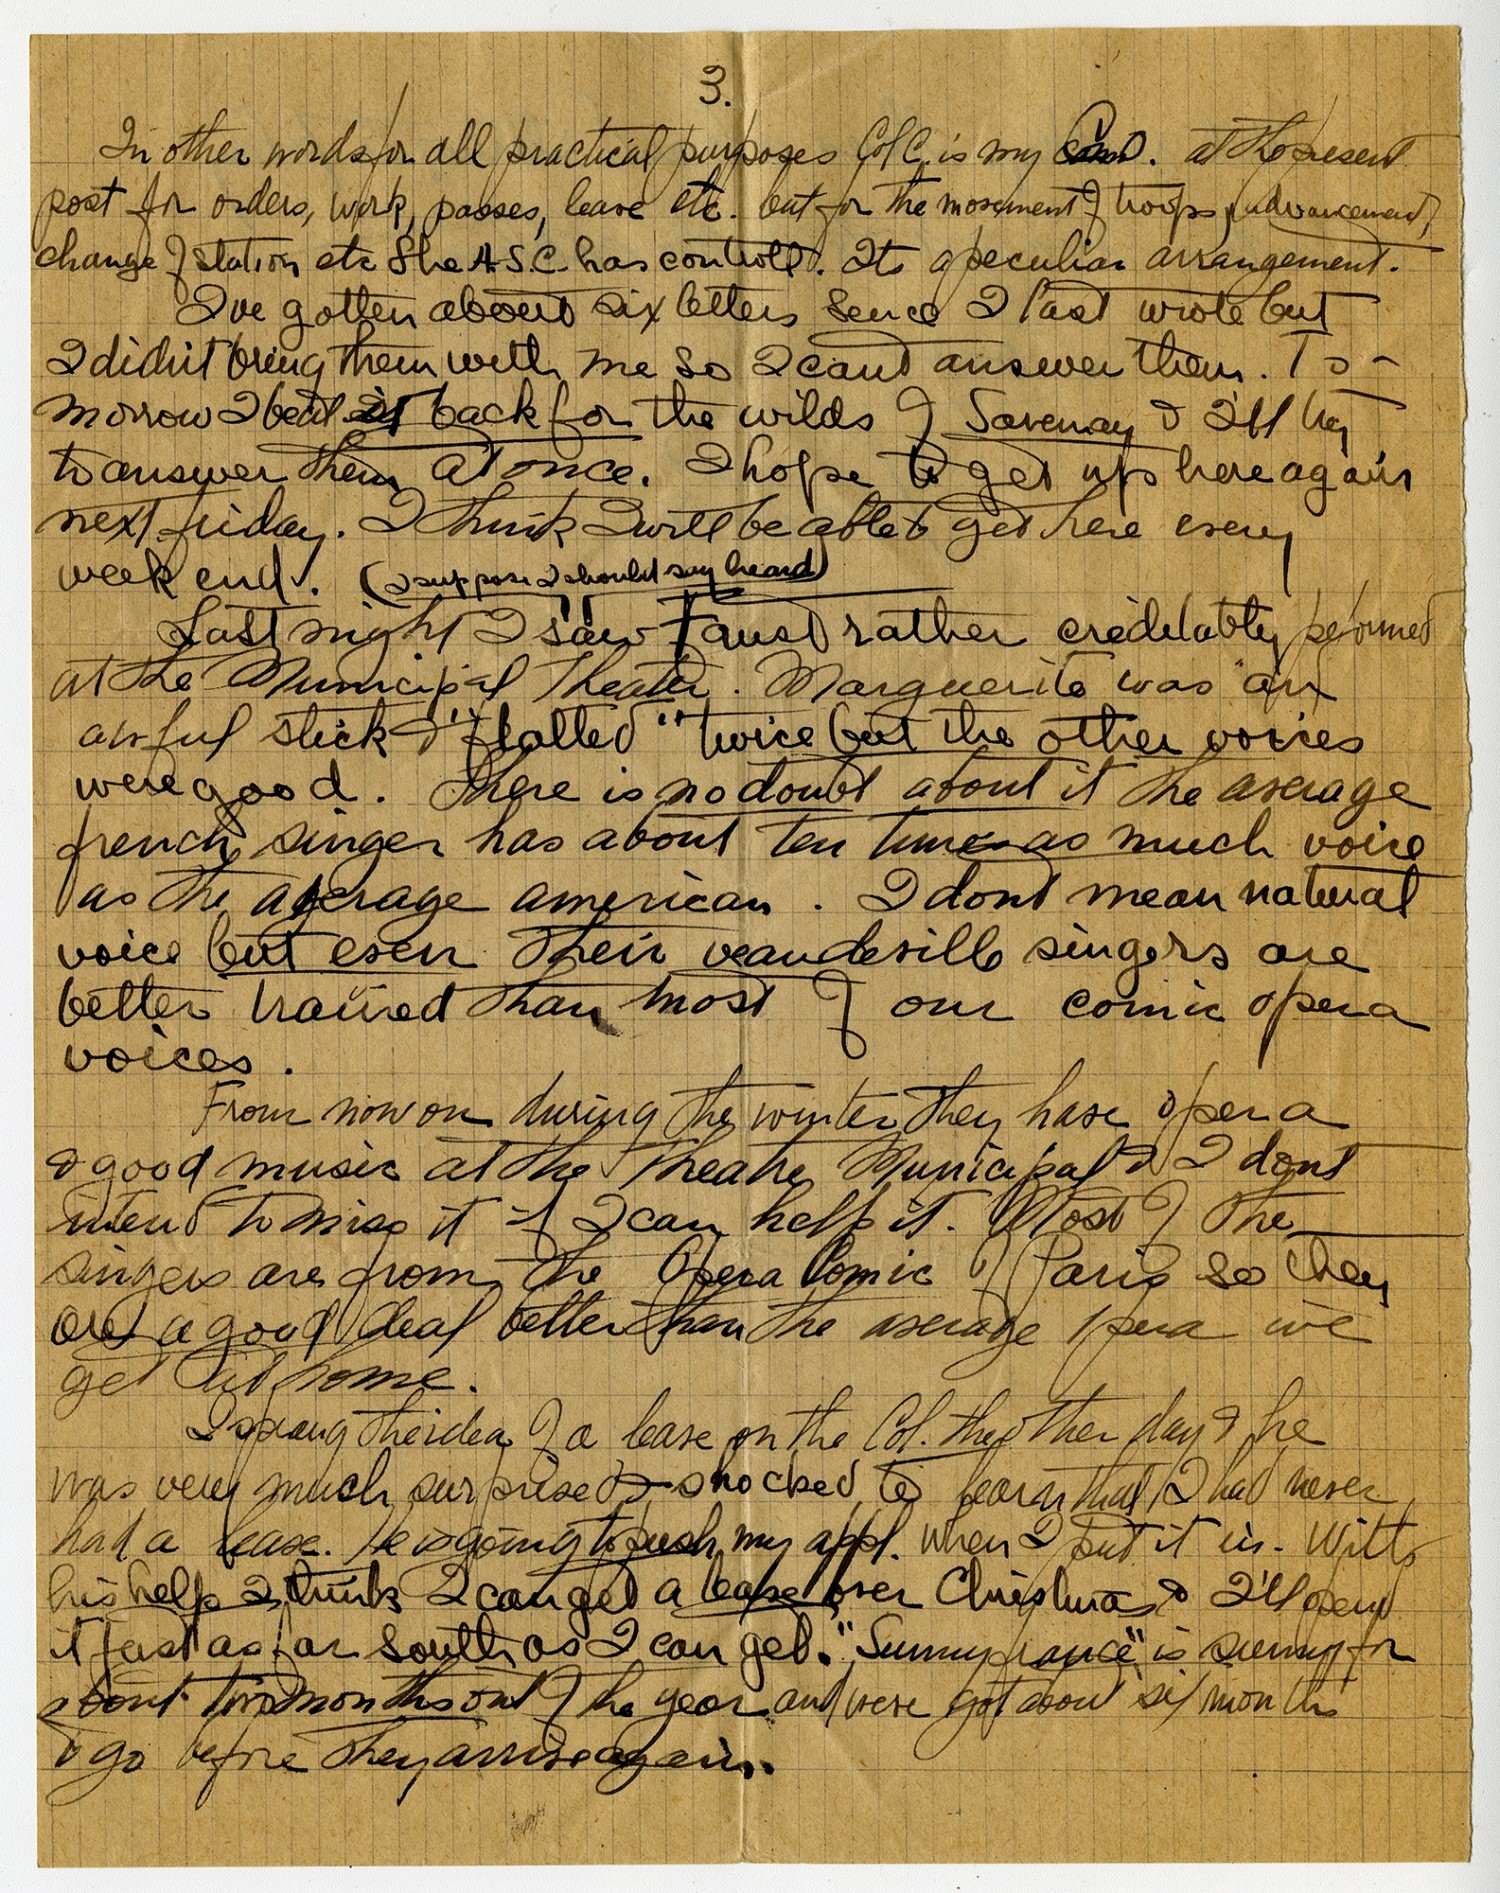 3.
In other words for all practical purposes Col C. is my Com. at the present
post for orders, work, passes, leave etc. but for the movement of troops, advancement,
change of station etc the A.S.C. has control. Its a peculiar arrangement.
I've gotten about six letters sence I last wrote but
I didn't bring them with me so I cant answer them. To-
morrow I beat it back for the wilds of Savenay & I'll try
to answer them at once. I hope to get up here again
next friday. I think I will be able to get here every
week end. (I suppose I should say heard)
Last night I "saw" Faust rather creditably performed
at the Municipal Theater. Marguerite was an
awful stick & "flatted" twice but the other voices
were good. There is no doubt about it the average
french singer has about ten times as much voice
as the average american. I dont mean natural
voice but even their vaudeville singers are
better trained than most of our comic opera
voices.
From now on during the winter they have opera
& good music at the Theatre Municipal & I dont
intend to miss it if I can help it. Most of the
singers are from the Opera Comic of Paris so they
are a good deal better than the average opera we
get at home.
I sprang the idea of a leave on the Col. the other day & he
was very much surprised & shocked to learn that I had never
had a leave. He is going to push my appl. when I put it in. With
his help I think I can get a leave over Christmas & I'll spend
it just as far south as I can get. "Sunny france" is sunny for
about two months out of the year and we've got about six months
to go before they arrive again.